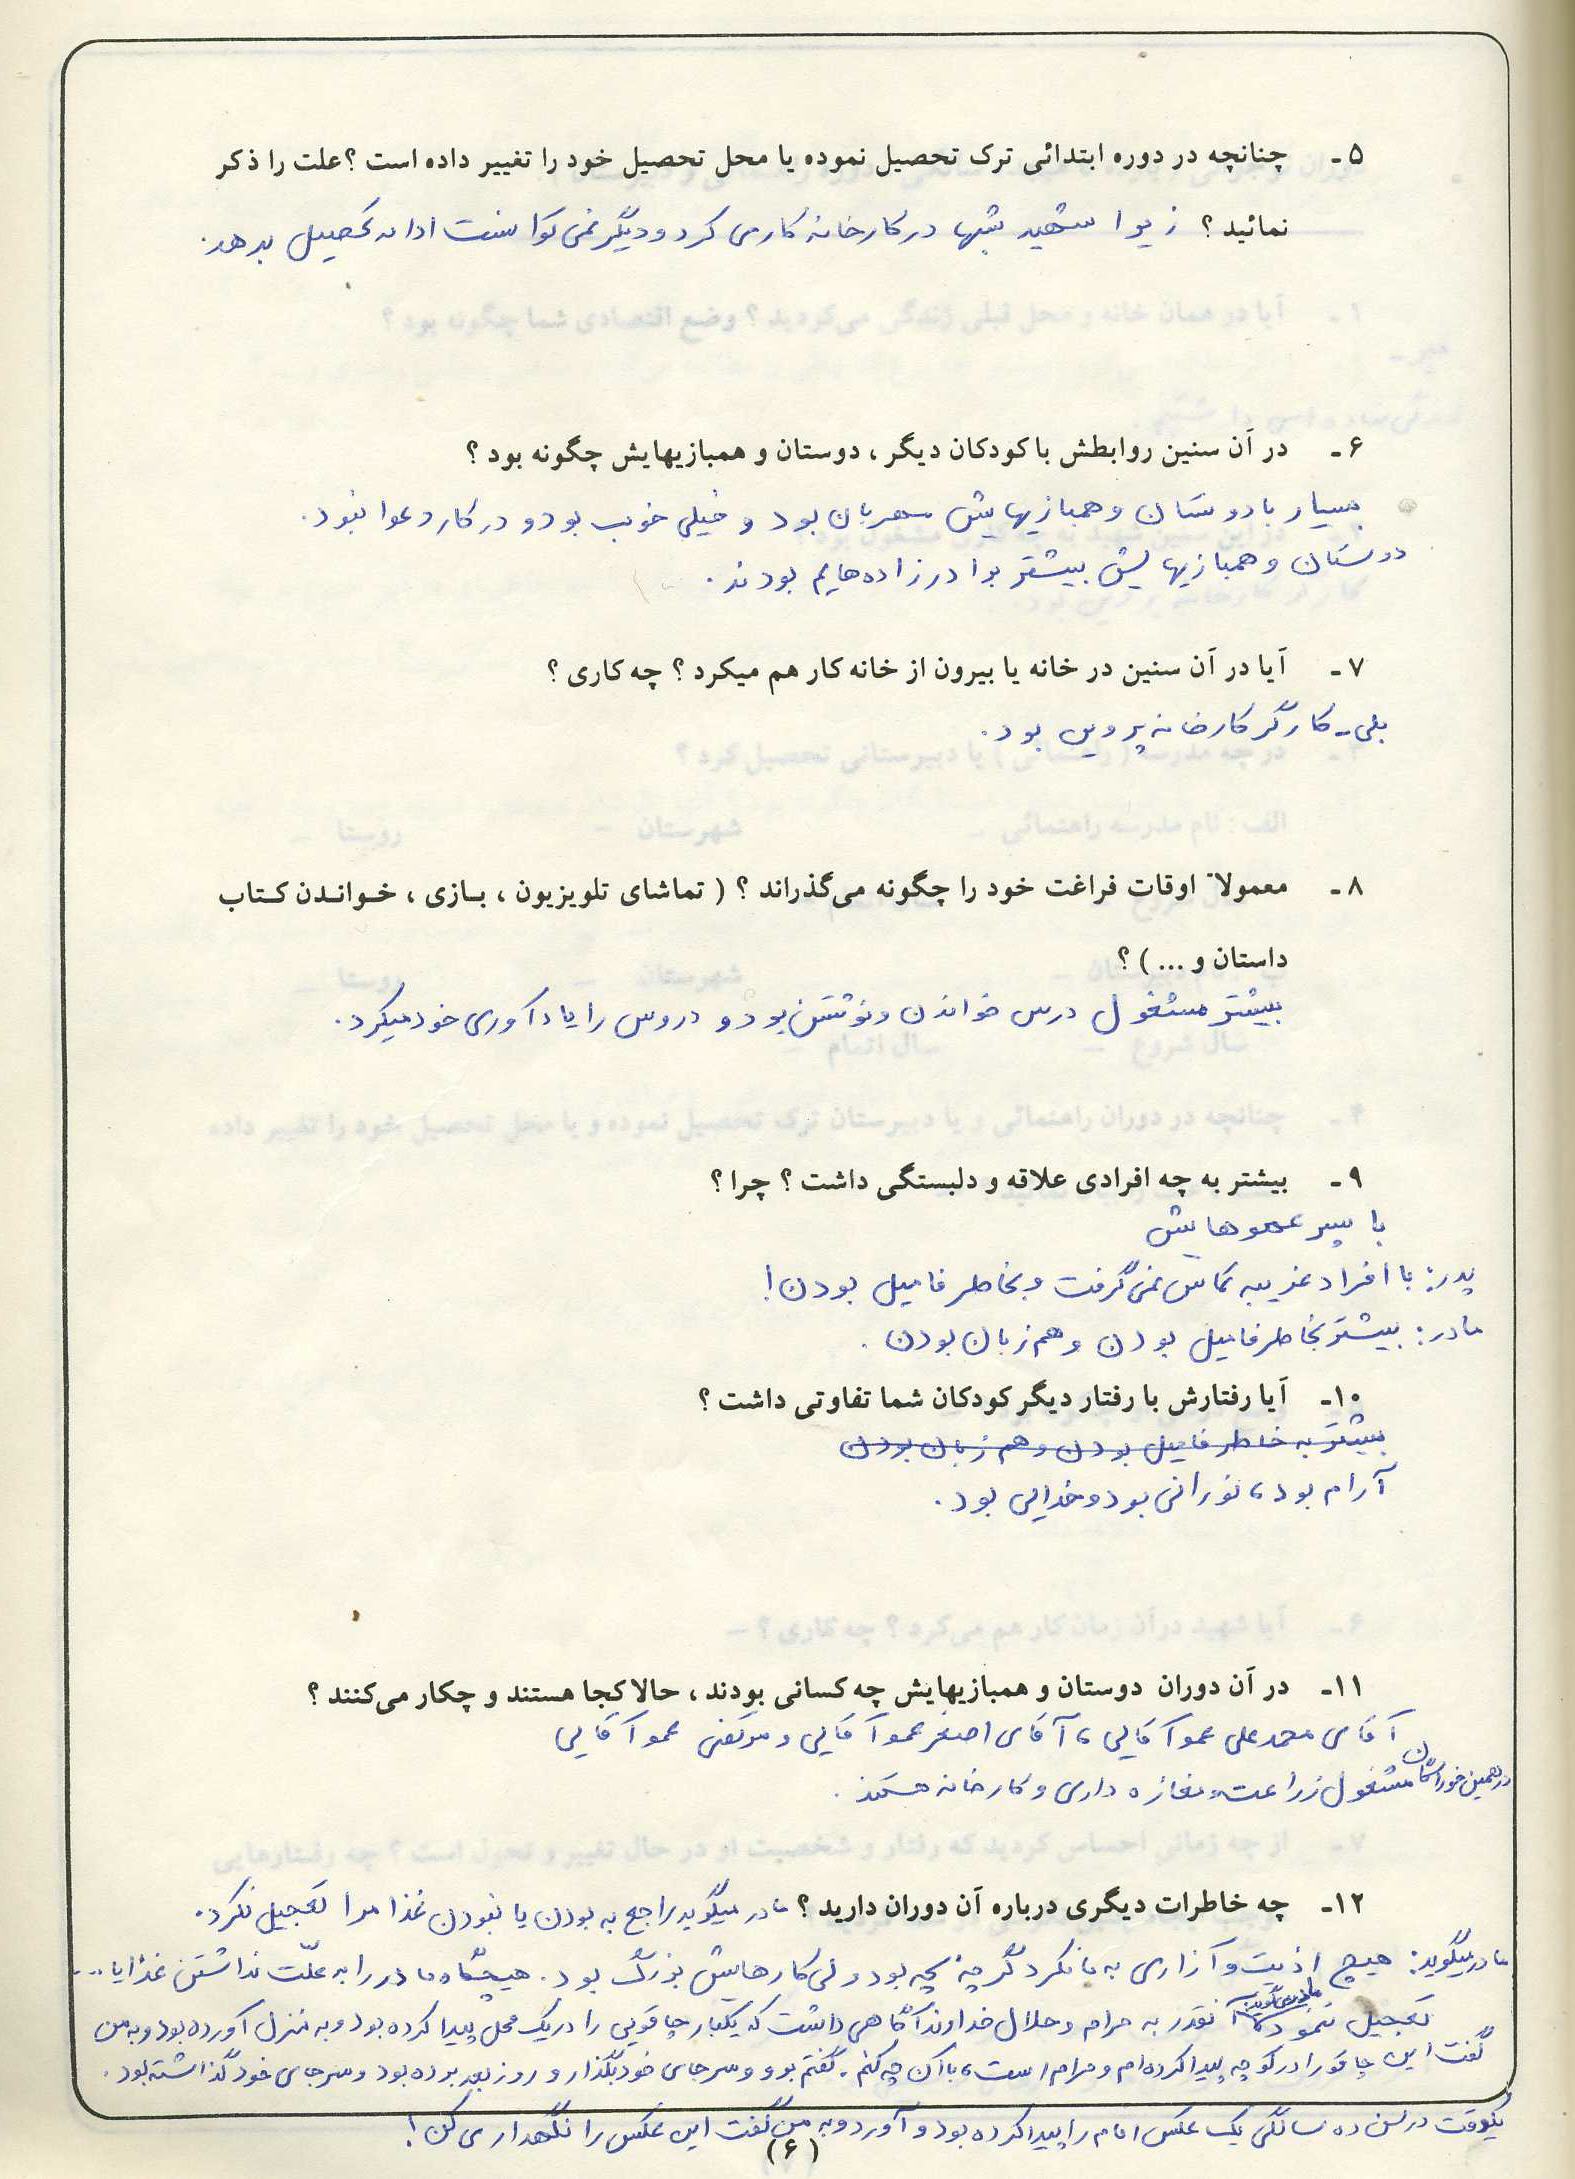 ۵ - چنانچه در دوره ابتدائی ترک تحصیل نموده یا محل تحصیل خود را تغییر داده است ؟ علت را ذکر
نمائید ؟ زیرا شهید شبها در کارخانه کار می کرد و دیگر نمی توانست ادامه تحصیل بدهد.
۶ - در آن سنین روابطش با کودکان دیگر ، دوستان و همبازیهایش چگونه بود ؟
بسیار با دوستان و همبازیهایش مهربان بود و خیلی خوب بود و در کار دعوا نبود.
دوستان و همبازیهایش بیشتر برادرزاده هایم بودند.
۷ - آیا در آن سنین در خانه یا بیرون از خانه کار هم میکرد ؟ چه کاری ؟
بلی - کارگر کارخانه پروین بود.
۸ - معمولاً اوقات فراغت خود را چگونه می گذراند ؟ ( تماشای تلویزیون ، بازی ، خواندن کتاب
داستان و ... ) ؟
بیشتر مشغول درس خواندن و نوشتن بود و دروس را یادآوری خود میکرد.
۹ - بیشتر به چه افرادی علاقه و دلبستگی داشت ؟ چرا ؟
با پسر عموهایش
پدر: با افراد غریبه تماس نمی گرفت و بخاطر فامیل بودن!
مادر: بیشتر بخاطر فامیل بودن و هم زبان بودن.
۱۰ - آیا رفتارش با رفتار دیگر کودکان شما تفاوتی داشت ؟
بیشتر به خاطر فامیل بودن و هم زبان بودن
آرام بود، نورانی بود و خدایی بود.
۱۱ - در آن دوران دوستان و همبازیهایش چه کسانی بودند ، حالا کجا هستند و چکار می کنند ؟
آقای محمد علی عمو آقایی، آقای اصغر عمو آقایی و مرتضی عمو آقایی
در همین خوراسگان مشغول زراعت و مغازه داری و کارخانه هستند.
۱۲ - چه خاطرات دیگری درباره آن دوران دارید ؟ مادر میگوید راجع به بودن یا نبودن غذا مرا تعجیل نکرد.
مادر میگوید: هیچ اذیت و آزاری به ما نکرد گرچه بچه بود ولی کارهایش بزرگ بود. هیچگاه مادر را به علّت نداشتن غذا یا ...
تعجیل ننمود مادر میگوید: آنقدر به حرام و حلال خداوند آگاهی داشت که یکبار چاقویی را در یک محل پیدا کرده بود و به منزل آورده بود و به من
گفت این چاقو را در کوچه پیدا کرده ام و حرام است، با آن چه کنم. گفتم برو و سر جای خود بگذار و روز بعد برده بود و سر جای خود گذاشته بود.
یکوقت در سن ده سالگی یک عکس امام را پیدا کرده بود و آورد و به من گفت این عکس را نگهداری کن!
(۶)